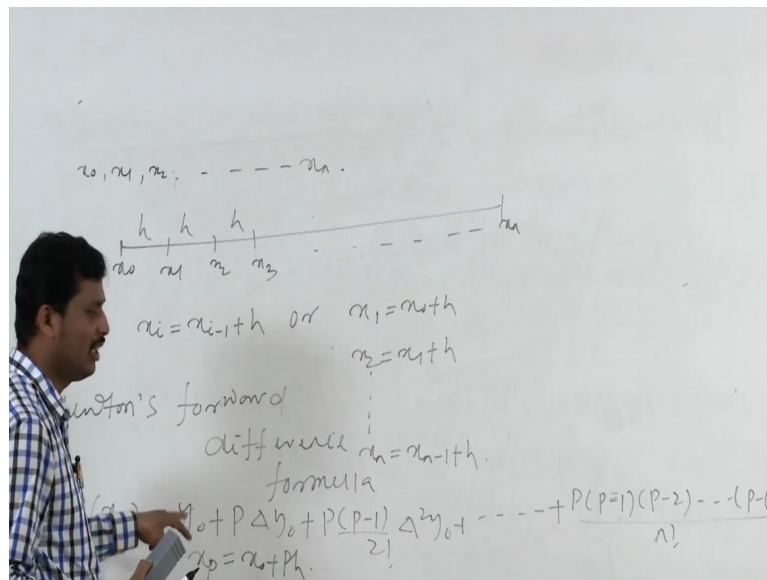 x₀, x₁, x₂, - - - - xₙ.
h h h
x₀ x₁ x₂ x₃ . - - - - xₙ
xᵢ = xᵢ₋₁ + h or x₁ = x₀ + h
x₂ = x₁ + h
forward
difference xₙ = xₙ₋₁ + h.
formula
y₀ + P Δy₀ + P(P-1)/2! Δ²y₀ + - - - - + P(P-1)(P-2) - - - (P-/n!
xₚ = x₀ + Ph.